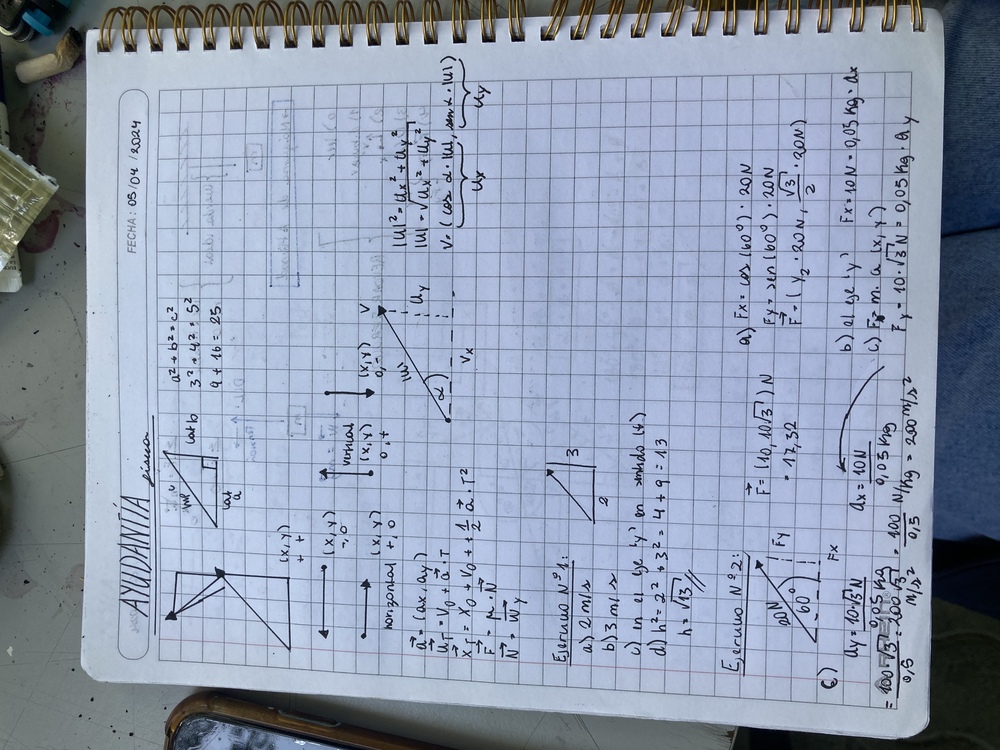 AYUDANTÍA física
FECHA: 05/04/2024
hip c
cat b
cat a
a² + b² = c²
3² + 4² = 5²
9 + 16 = 25
(x, y)
+ +
(x, y)
-, 0
horizontal
(x, y)
+, 0
vertical
(x, y)
0, +
(x, y)
0, -
V
|U|
α
Uy
Vx
|U|² = Ux² + Uy²
|U| = √Ux² + Uy²
V = (cos α · |U|, sen α · |U|)
Ux
Uy
a⃗ = (ax, ay)
U⃗T = V0 + a⃗ · T
x⃗T = X0 + V0 + + 1/2 a⃗ · T²
F⃗ = μ · N⃗
N⃗ = W⃗y
Ejercicio Nº1:
a) 2 m/s
b) 3 m/s
c) en el eje "y" en sentido (+)
d) h² = 2² + 3² = 4 + 9 = 13
h = √13 //
3
2
Ejercicio Nº2:
20N
60°
Fy
Fx
F⃗ = (10, 10√3) N
= 17,32
a) Fx = cos (60°) · 20N
Fy = sen (60°) · 20N
F⃗ = (1/2 · 20N, √3/2 · 20N)
b) el eje "y"
Fx = 10N = 0,05 kg · ax
c) F = m · a (x, y)
Fy = 10·√3 N = 0,05 kg · ay
c)
ay = 10·√3 N / 0,05 kg
= 100·√3 / 0,5 = 200√3 m/s²
ax = 10N / 0,05 kg
= 100 / 0,5 N/kg = 200 m/s²